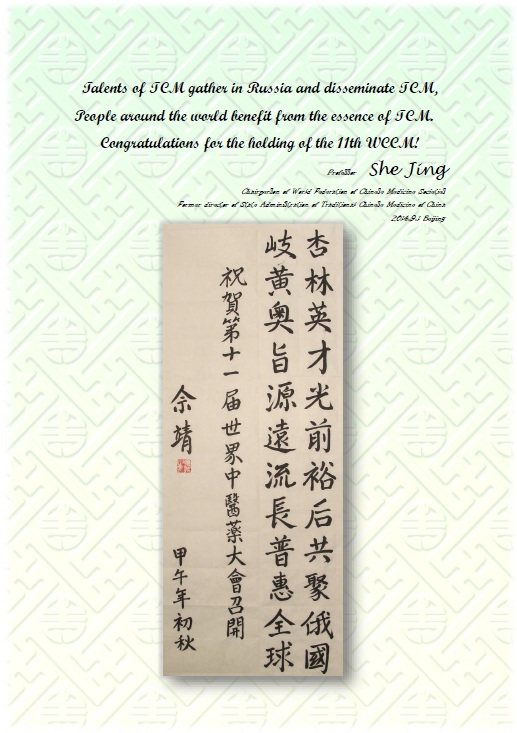 Talents of TCM gather in Russia and disseminate TCM,
People around the world benefit from the essence of TCM.
Congratulations for the holding of the 11th WCCM!
Professor She Jing
Chairperson of World Federation of Chinese Medicine Societies
Former director of State Administration of Traditional Chinese Medicine of China
2014.9.1 Beijing
杏林英才光前裕后共聚俄國
岐黄奥旨源遠流長普惠全球
祝賀第十一届世界中醫藥大會召開
佘靖
甲午年初秋